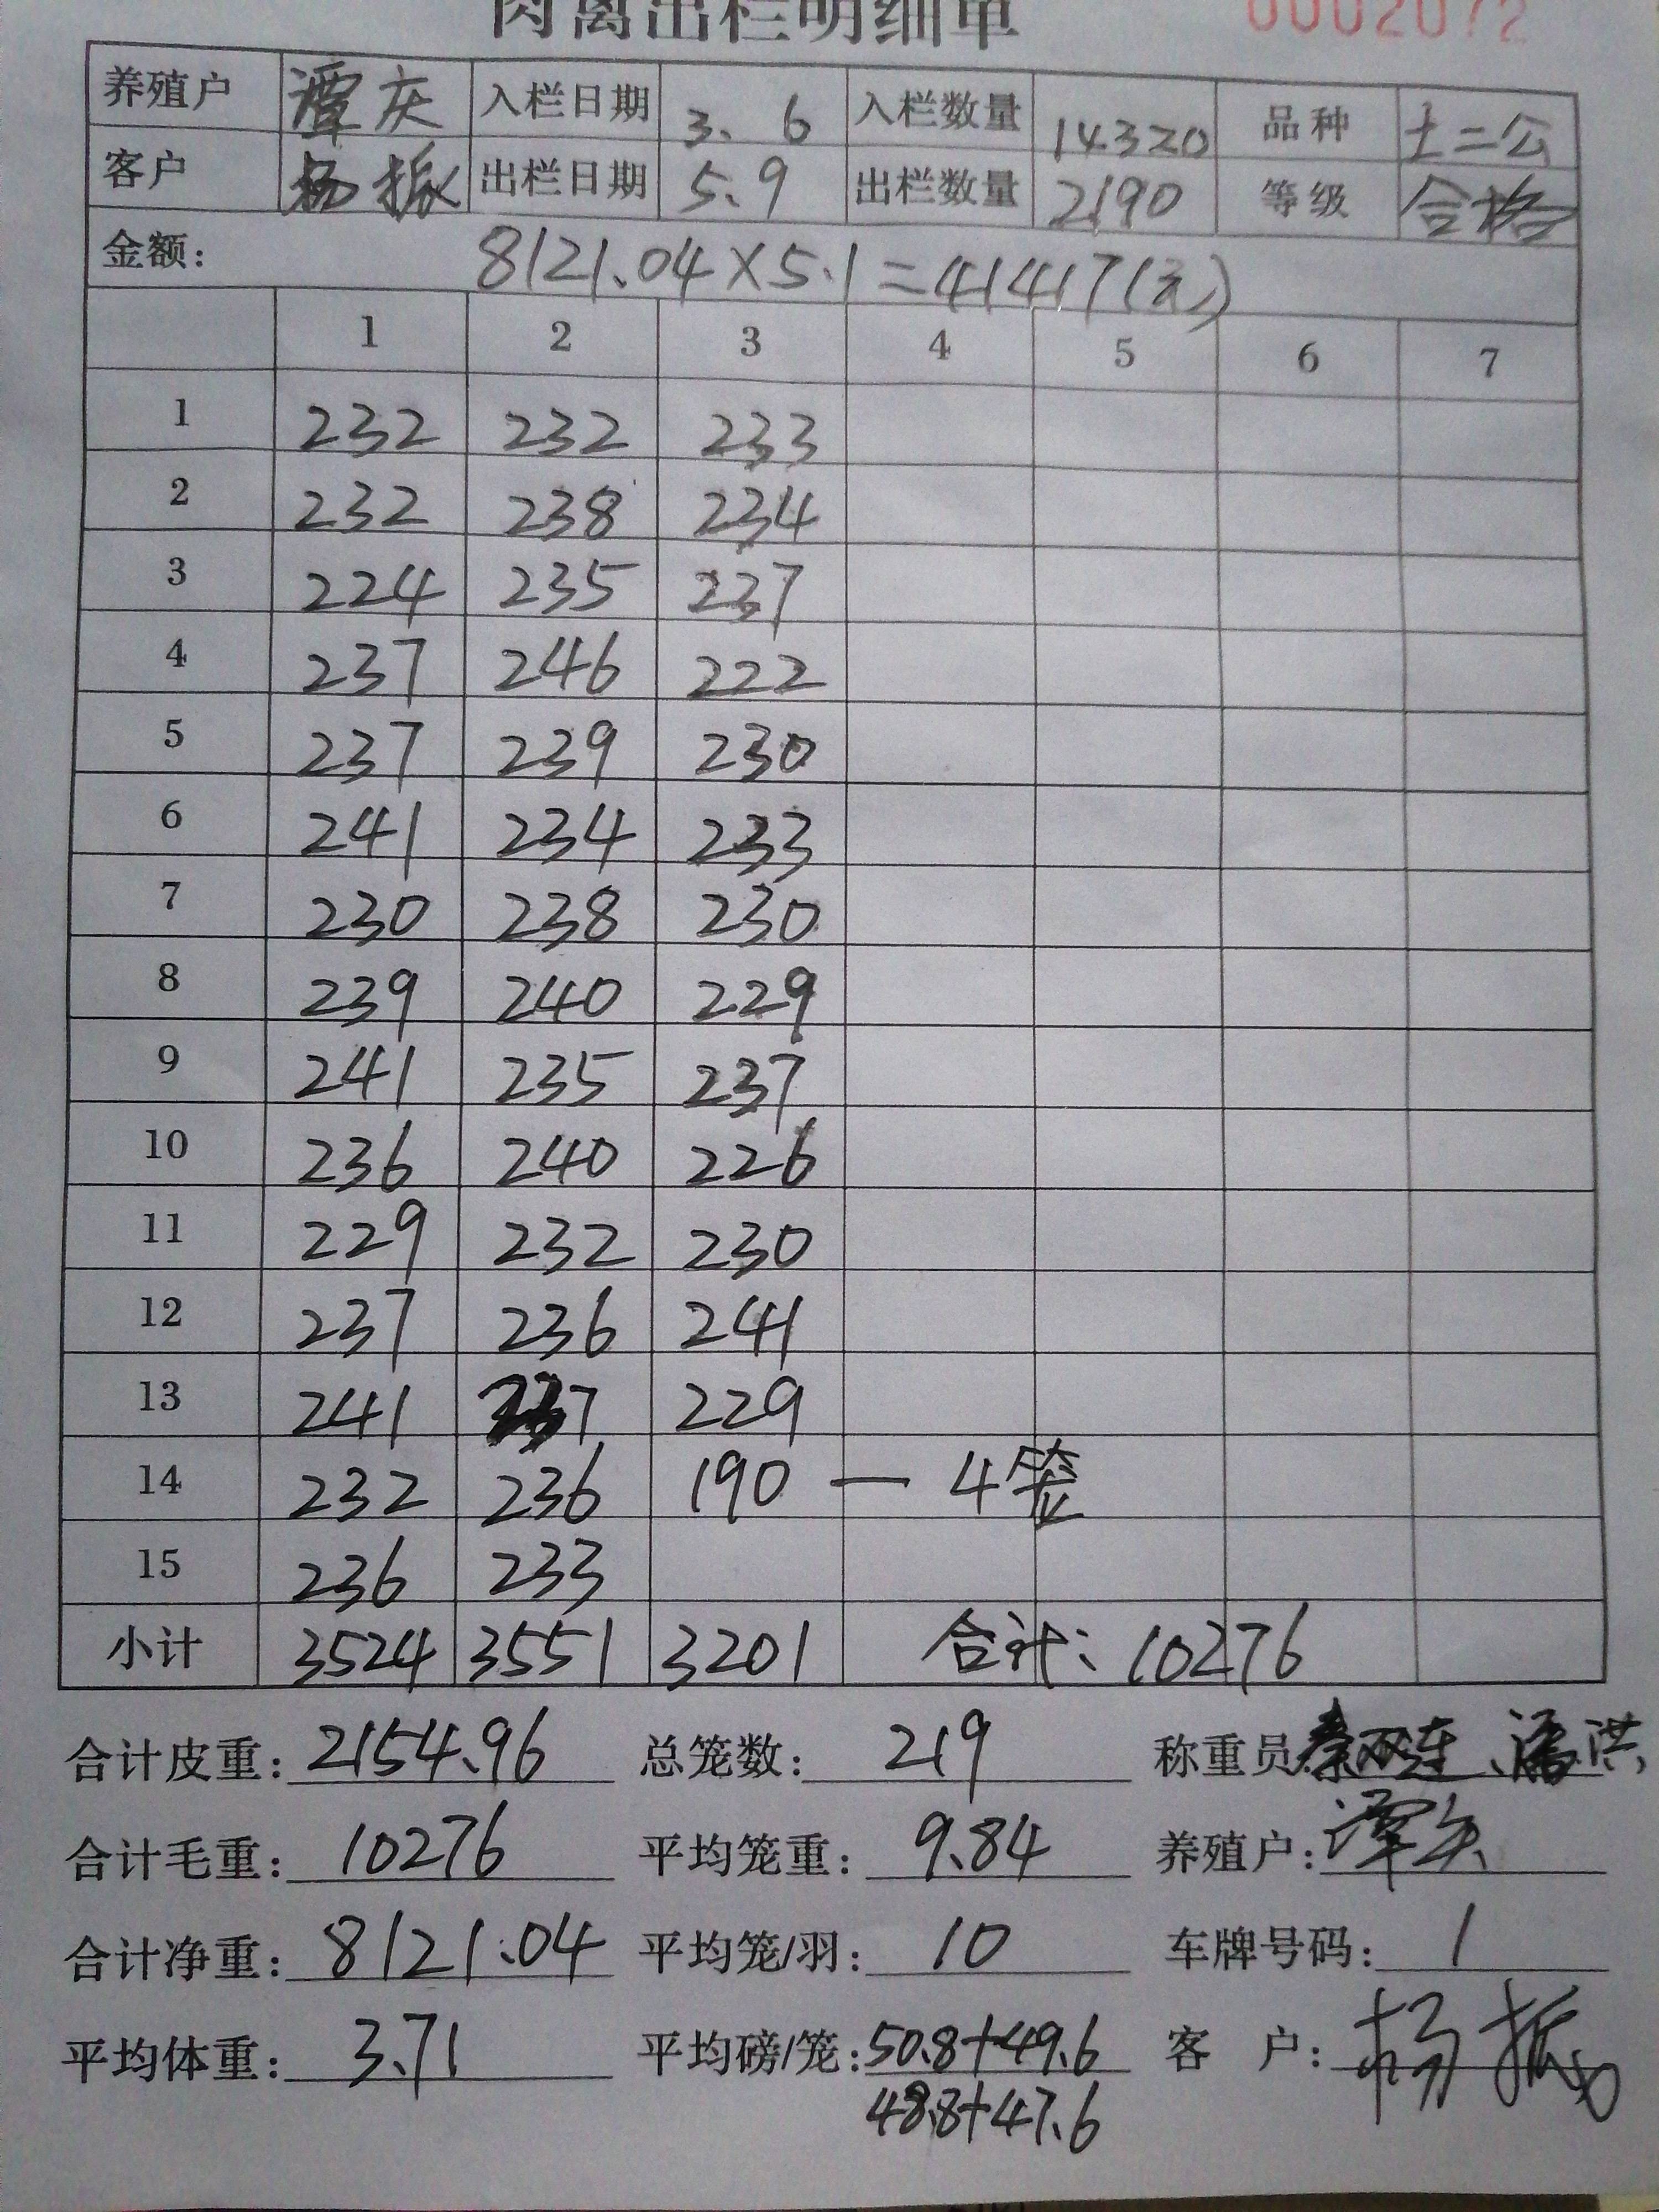 肉禽出栏明细单 0002072
养殖户 谭庆 入栏日期 3、6 入栏数量 14320 品种 土二公
客户 杨振 出栏日期 5、9 出栏数量 2190 等级 合格
金额： 8121.04×5.1=41417(元)
1 2 3 4 5 6 7
1 232 232 233
2 232 238 234
3 224 235 237
4 237 246 222
5 237 239 230
6 241 234 233
7 230 238 230
8 239 240 229
9 241 235 237
10 236 240 226
11 229 232 230
12 237 236 241
13 241 237 229
14 232 236 190 — 4笠
15 236 233
小计 3524 3551 3201 合计：10276
合计皮重：2154.96 总笼数：219 称重员：秦双连、潘洪
合计毛重：10276 平均笼重：9.84 养殖户：谭庆
合计净重：8121.04 平均笼/羽：10 车牌号码：1
平均体重：3.71 平均磅/笼：50.8+49.6 客 户：杨振
48.8+47.6